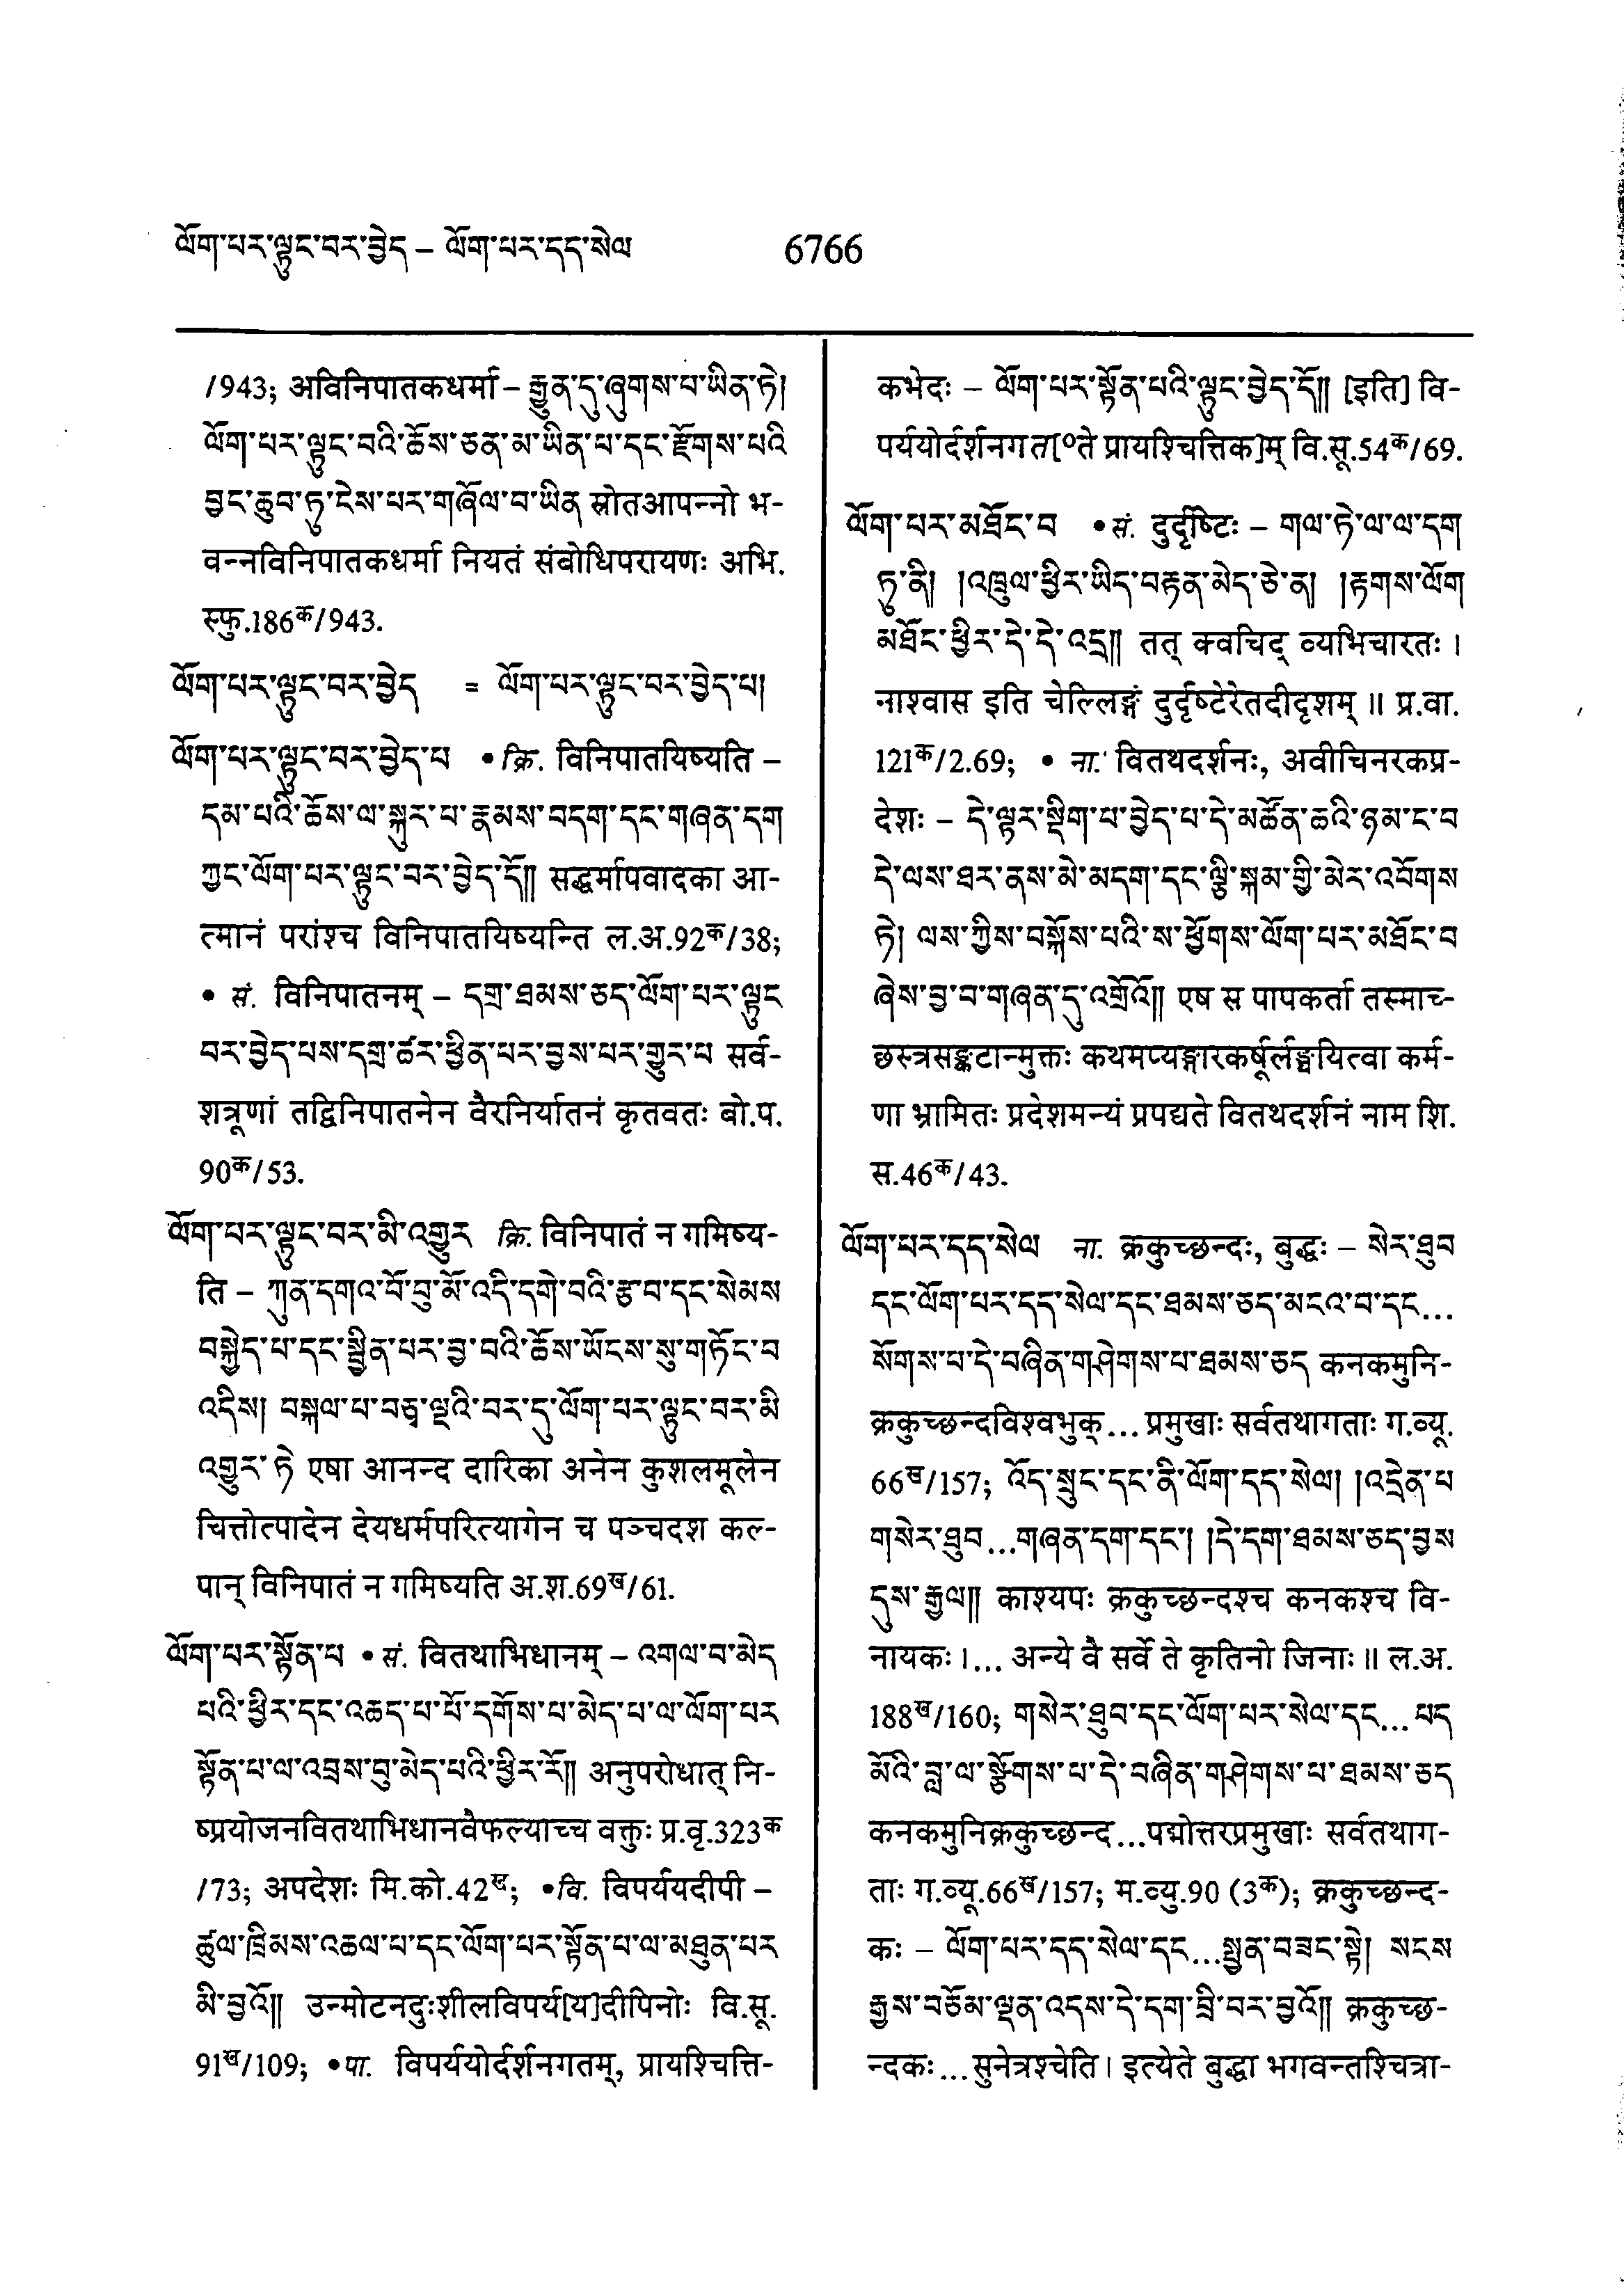 ལོག་པར་ལྟུང་བར་བྱེད – ལོག་པར་དད་སེལ 6766
/943; अविनिपातकधर्मा – རྒྱུན་དུ་ཞུགས་པ་ཡིན་ཏེ།
ལོག་པར་ལྟུང་བའི་ཆོས་ཅན་མ་ཡིན་པ་དང་རྫོགས་པའི
བྱང་ཆུབ་ཏུ་ངེས་པར་གཞོལ་བ་ཡིན स्रोतआपन्नो भ-
वन्नविनिपातकधर्मा नियतं संबोधिपरायणः अभि.
स्फु.186क/943.
ལོག་པར་ལྟུང་བར་བྱེད = ལོག་པར་ལྟུང་བར་བྱེད་པ།
ལོག་པར་ལྟུང་བར་བྱེད་པ •क्रि. विनिपातयिष्यति –
དམ་པའི་ཆོས་ལ་སྐུར་པ་རྣམས་བདག་དང་གཞན་དག
ཀྱང་ལོག་པར་ལྟུང་བར་བྱེད་དོ།། सद्धर्मापवादका आ-
त्मानं परांश्च विनिपातयिष्यन्ति ल.अ.92क/38;
• सं. विनिपातनम् – དགྲ་ཐམས་ཅད་ལོག་པར་ལྟུང
བར་བྱེད་པས་དགྲ་ཚར་ཕྱིན་པར་བྱས་པར་གྱུར་པ सर्व-
शत्रूणां तद्विनिपातनेन वैरनिर्यातनं कृतवतः बो.प.
90क/53.
ལོག་པར་ལྟུང་བར་མི་འགྱུར क्रि. विनिपातं न गमिष्य-
ति – ཀུན་དགའ་བོ་བུ་མོ་འདི་དགེ་བའི་རྩ་བ་དང་སེམས
བསྐྱེད་པ་དང་སྦྱིན་པར་བྱ་བའི་ཆོས་ཡོངས་སུ་གཏོང་བ
འདིས། བསྐལ་པ་བཅྭ་ལྔའི་བར་དུ་ལོག་པར་ལྟུང་བར་མི
འགྱུར་ཏེ एषा आनन्द दारिका अनेन कुशलमूलेन
चित्तोत्पादेन देयधर्मपरित्यागेन च पञ्चदश कल्-
पान् विनिपातं न गमिष्यति अ.श.69ख/61.
ལོག་པར་སྟོན་པ •सं. वितथाभिधानम् – འགལ་བ་མེད
པའི་ཕྱིར་དང་འཆད་པ་པོ་དགོས་པ་མེད་པ་ལ་ལོག་པར
སྟོན་པ་ལ་འབྲས་བུ་མེད་པའི་ཕྱིར་རོ།། अनुपरोधात् नि-
ष्प्रयोजनवितथाभिधानवैफल्याच्च वक्तुः प्र.वृ.323क
/73; अपदेशः मि.को.42ख; •वि. विपर्ययदीपी –
ཚུལ་ཁྲིམས་འཆལ་པ་དང་ལོག་པར་སྟོན་པ་ལ་མཐུན་པར
མི་བྱའོ།། उन्मोटनदुःशीलविपर्य[य]दीपिनोः वि.सू.
91ख/109; •पा. विपर्ययोर्दर्शनगतम्, प्रायश्चित्ति-
कभेदः – ལོག་པར་སྟོན་པའི་ལྟུང་བྱེད་དོ།། [इति] वि-
पर्ययोर्दर्शनगत[०ते प्रायश्चित्तिक]म् वि.सू.54क/69.
ལོག་པར་མཐོང་བ •सं. दुर्दृष्टिः – གལ་ཏེ་ལ་ལ་དག
ཏུ་ནི། །འཁྲུལ་ཕྱིར་ཡིད་བརྟན་མེད་ཅེ་ན། །རྟགས་ལོག
མཐོང་ཕྱིར་དེ་དེ་འདྲ།། तत् क्वचिद् व्यभिचारतः ।
नाश्वास इति चेल्लिङ्गं दुर्दृष्टेरेतदीदृशम् ॥ प्र.वा.
121क/2.69; • ना. वितथदर्शनः, अवीचिनरकप्र-
देशः – དེ་ལྟར་སྡིག་པ་བྱེད་པ་དེ་མཚོན་ཆའི་ཉམ་ང་བ
དེ་ལས་ཐར་ནས་མེ་མདག་དང་ལྕི་སྐམ་གྱི་མེར་འབོགས
ཏེ། ལས་ཀྱིས་བསྐོས་པའི་ས་ཕྱོགས་ལོག་པར་མཐོང་བ
ཞེས་བྱ་བ་གཞན་དུ་འགྲོའོ།། एष स पापकर्ता तस्माच्-
छस्त्रसङ्कटान्मुक्तः कथमप्यङ्गारकर्षूर्लङ्घयित्वा कर्म-
णा भ्रामितः प्रदेशमन्यं प्रपद्यते वितथदर्शनं नाम शि.
स.46क/43.
ལོག་པར་དད་སེལ ना. क्रकुच्छन्दः, बुद्धः – སེར་ཐུབ
དང་ལོག་པར་དད་སེལ་དང་ཐམས་ཅད་མངའ་བ་དང...
སོགས་པ་དེ་བཞིན་གཤེགས་པ་ཐམས་ཅད कनकमुनि-
क्रकुच्छन्दविश्वभुक्... प्रमुखाः सर्वतथागताः ग.व्यू.
66ख/157; འོད་སྲུང་དང་ནི་ལོག་དད་སེལ། །འདྲེན་པ
གསེར་ཐུབ...གཞན་དག་དང་། །དེ་དག་ཐམས་ཅད་བྱས
དུས་རྒྱལ།། काश्यपः क्रकुच्छन्दश्च कनकश्च वि-
नायकः ।... अन्ये वै सर्वे ते कृतिनो जिनाः ॥ ल.अ.
188ख/160; གསེར་ཐུབ་དང་ལོག་པར་སེལ་དང...པད
མོའི་བླ་ལ་སྩོགས་པ་དེ་བཞིན་གཤེགས་པ་ཐམས་ཅད
कनकमुनिक्रकुच्छन्द...पद्मोत्तरप्रमुखाः सर्वतथाग-
ताः ग.व्यू.66ख/157; म.व्यु.90 (3क); क्रकुच्छन्द-
कः – ལོག་པར་དད་སེལ་དང...སྤྱན་བཟང་སྟེ། སངས
རྒྱས་བཅོམ་ལྡན་འདས་དེ་དག་བྲི་བར་བྱའོ།། क्रकुच्छ-
न्दकः...सुनेत्रश्चेति। इत्येते बुद्धा भगवन्तश्चित्रा-